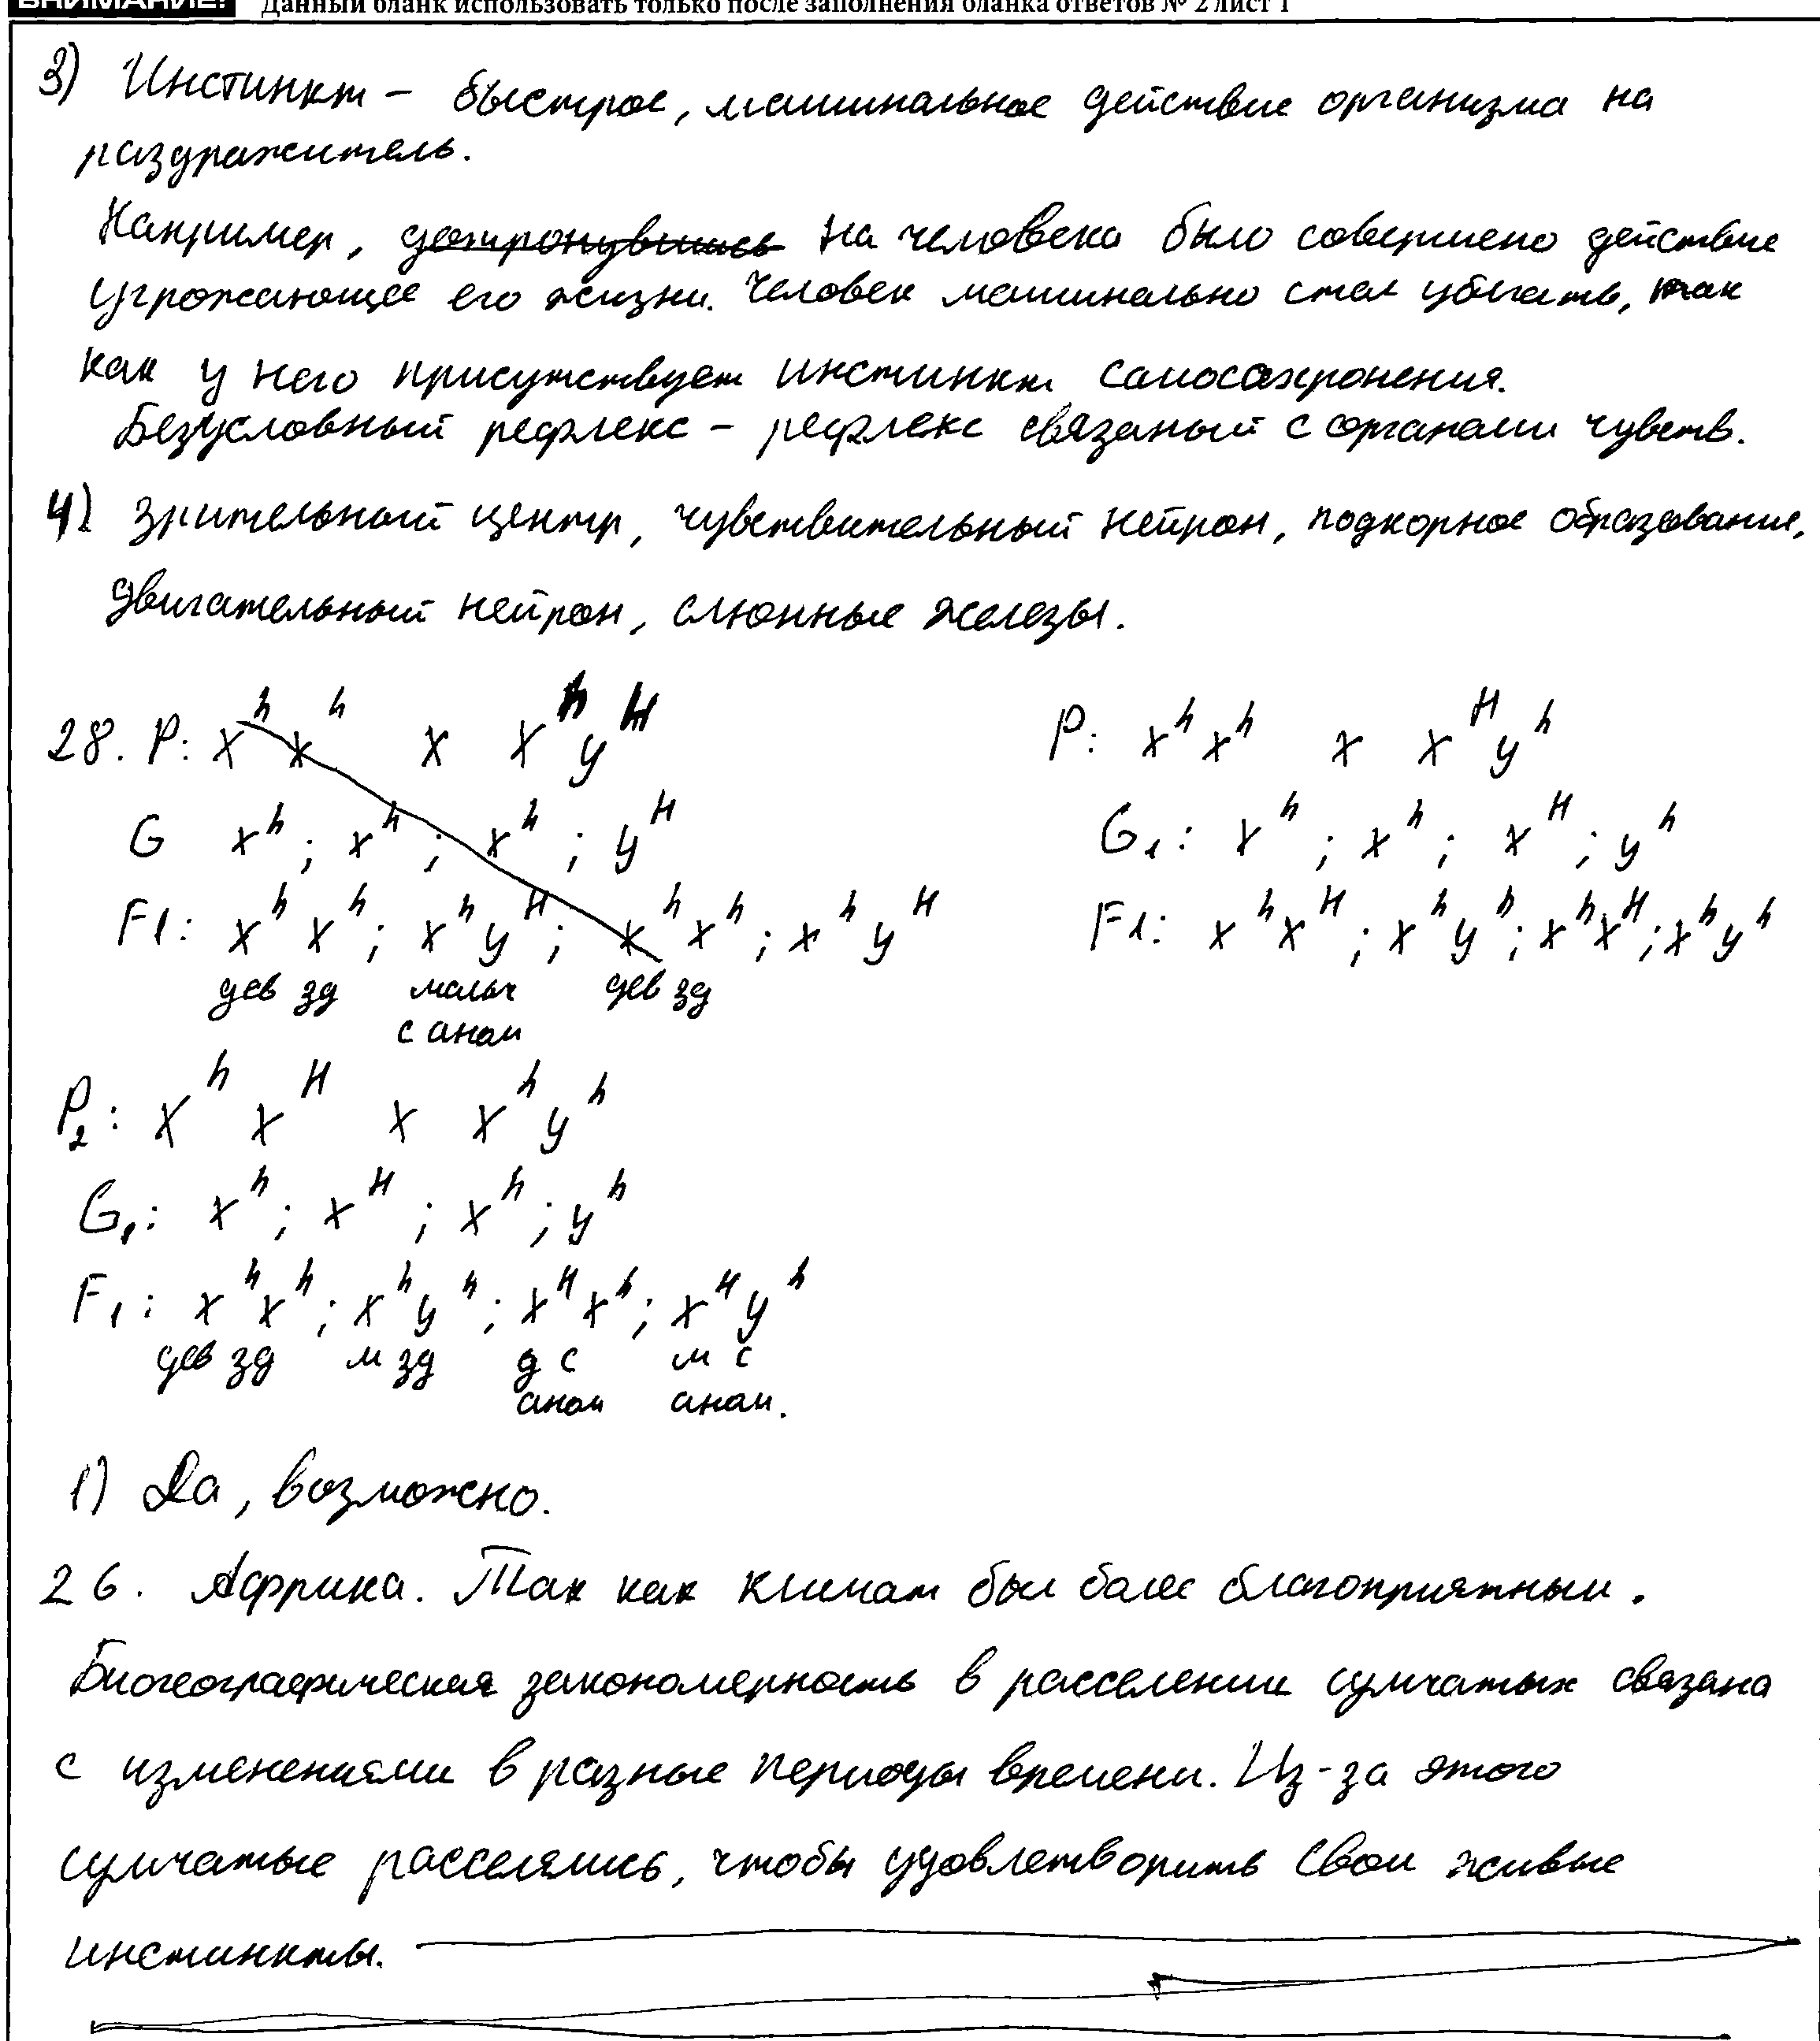 ВНИМАНИЕ! Данный бланк использовать только после заполнения бланка ответов № 2 лист 1
3) Инстинкт – быстрое, машинальное действие организма на
раздражитель.
Например, дотронувшись на человека было совершено действие
угрожающее его жизни. Человек машинально стал убегать, так
как у него присутствует инстинкт самосохронения.
Безусловный рефлекс – рефлекс связаный с органами чувств.
4) Зрительный центр, чувствительный нейрон, подкорное образование,
двигательный нейрон, слюнные железы.
28. P: X^h X^h x X^h y^H P: X^h X^h x X^H y^h
G X^h ; X^h ; X^h ; y^H G1: X^h ; X^h ; X^H ; y^h
F1: X^h X^h ; X^h y^H ; X^h X^h ; X^h y^H F1: X^h X^H ; X^h y^h ; X^h X^H ; X^h y^h
дев зд мальч дев зд
с аном
P2: X^h X^H x X^h y^h
G1: X^h ; X^H ; X^h ; y^h
F1: X^h X^h ; X^h y^h ; X^H X^h ; X^H y^h
дев зд м зд д с м с
аном аном.
1) Да, возможно.
26. Африка. Так как климат был более благоприятным.
Биогеографическая закономерность в расселении сумчатых связана
с изменениями в разные периоды времени. Из-за этого
сумчатые расселялись, чтобы удовлетворить свои живые
инстинкты.